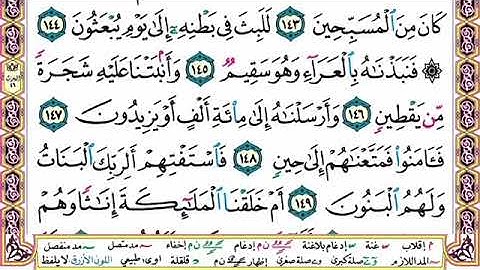 كَانَ مِنَ ٱلْمُسَبِّحِينَ ١٤٣ لَلَبِثَ فِى بَطْنِهِۦٓ إِلَىٰ يَوْمِ يُبْعَثُونَ ١٤٤
۞ فَنَبَذْنَٰهُ بِٱلْعَرَآءِ وَهُوَ سَقِيمٌ ١٤٥ وَأَنۢبَتْنَا عَلَيْهِ شَجَرَةً
مِّن يَقْطِينٍ ١٤٦ وَأَرْسَلْنَٰهُ إِلَىٰ مِا۟ئَةِ أَلْفٍ أَوْ يَزِيدُونَ ١٤٧
فَـَٔامَنُوا۟ فَمَتَّعْنَٰهُمْ إِلَىٰ حِينٍ ١٤٨ فَٱسْتَفْتِهِمْ أَلِرَبِّكَ ٱلْبَنَاتُ
وَلَهُمُ ٱلْبَنُونَ ١٤٩ أَمْ خَلَقْنَا ٱلْمَلَٰٓئِكَةَ إِنَٰثًا وَهُمْ
م إقلاب غنة إدغام بلاغنة ن م إدغام ن م إخفاء مد متصل مد منفصل
المد اللازم صلة كبرى صلة صغرى إظهار ن م قلقلة اللون الأزرق لا يلفظ